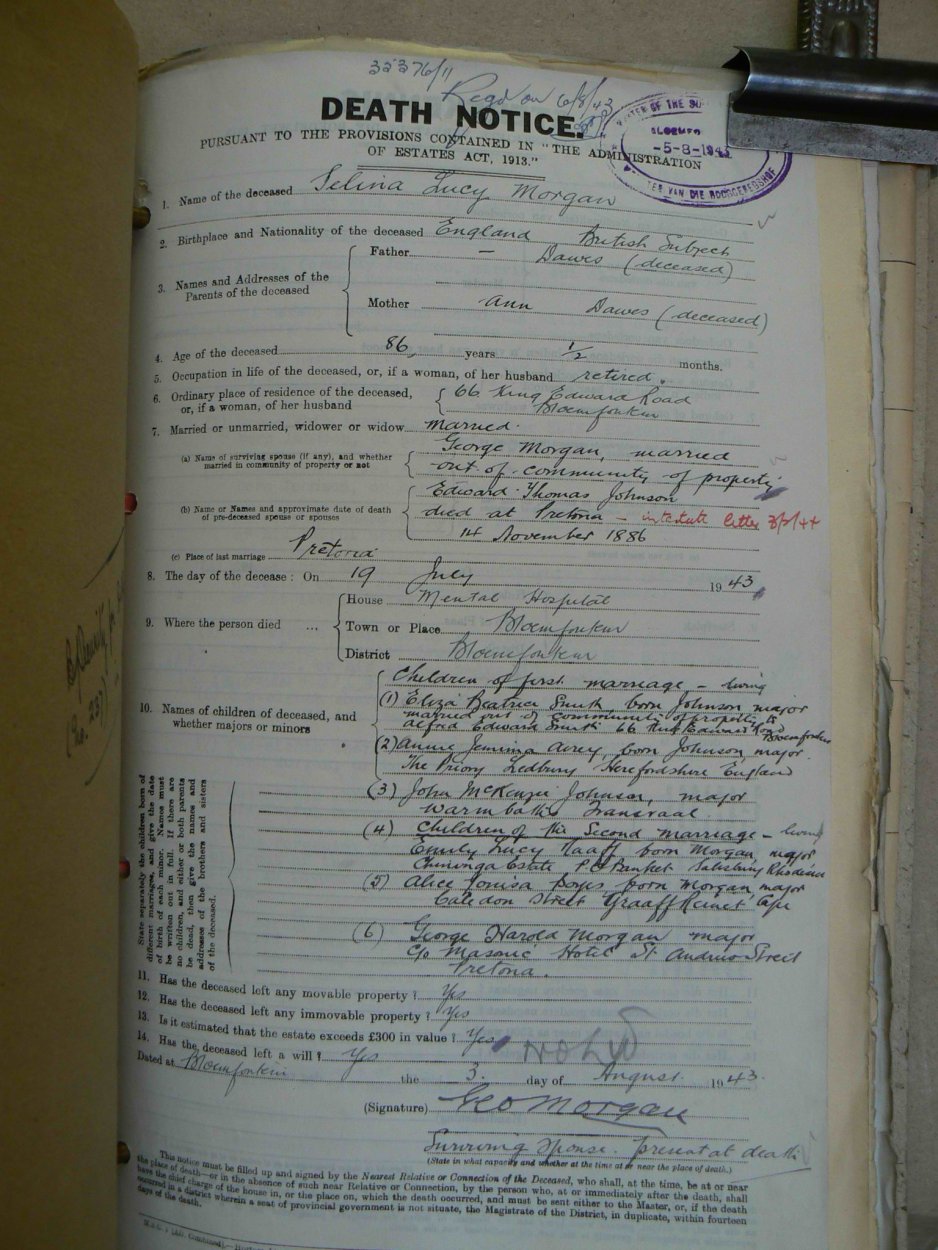 33376/11
Regd on 6/8/43
DEATH NOTICE.
PURSUANT TO THE PROVISIONS CONTAINED IN "THE ADMINISTRATION
OF ESTATES ACT, 1913."
-5-8-1943
1. Name of the deceased Selina Lucy Morgan
2. Birthplace and Nationality of the deceased England British Subject
3. Names and Addresses of the Parents of the deceased
Father — Dawes (deceased)
Mother Ann Dawes (deceased)
4. Age of the deceased 86 years ½ months.
5. Occupation in life of the deceased, or, if a woman, of her husband retired.
6. Ordinary place of residence of the deceased, or, if a woman, of her husband
66 King Edward Road
Bloemfontein
7. Married or unmarried, widower or widow married.
(a) Name of surviving spouse (if any), and whether married in community of property or not
George Morgan, married
out of community of property
(b) Name or Names and approximate date of death of pre-deceased spouse or spouses
Edward Thomas Johnson
died at Pretoria – intestate letter
14 November 1886
(c) Place of last marriage Pretoria
8. The day of the decease: On 19 July 1943
9. Where the person died ...
House Mental Hospital
Town or Place Bloemfontein
District Bloemfontein
10. Names of children of deceased, and whether majors or minors
Children of first marriage – living
(1) Eliza Beatrice Smith, born Johnson, major
married out of community of property to
Alfred Edward Smith 66 King Edward Road Bloemfontein
(2) Annie Jemima Avery, born Johnson, major.
The Priory Ledbury Herefordshire England
(3) John McKenzie Johnson, major
Warmbaths Transvaal.
(4) Children of the Second marriage – living
Emily Lucy Naaff born Morgan, major
Estate P.O. Banket Salisbury Rhodesia
(5) Alice Louisa born Morgan, major
Caledon Street Graaff Reinet Cape
(6) George Harold Morgan major
C/o Masonic Hotel St Andries Street
Pretoria.
State separately the children born of
different marriages, and give the date
of birth of each minor. Names must
be written out in full. If there are
no children, and either or both parents
be dead, then give the names and
addresses of the brothers and sisters
of the deceased.
11. Has the deceased left any movable property? Yes
12. Has the deceased left any immovable property? Yes
13. Is it estimated that the estate exceeds £300 in value? Yes
14. Has the deceased left a will? Yes
Noted
Dated at Bloemfontein the 3. day of August 1943.
(Signature) Geo Morgan
Surviving Spouse. present at death
(State in what capacity and whether at the time at or near the place of death.)
This notice must be filled up and signed by the Nearest Relative or Connection of the Deceased, who shall, at the time, be at or near
the place of death—or in the absence of such near Relative or Connection, by the person who, at or immediately after the death, shall
have the chief charge of the house in, or the place on, which the death occurred, and must be sent either to the Master, or, if the death
occurred in a district wherein a seat of provincial government is not situate, the Magistrate of the District, in duplicate, within fourteen
days of the death.